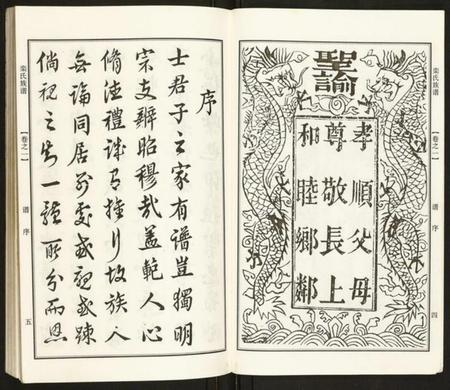 栾氏族谱
【卷之一】
谱序
四
聖諭
孝順父母
尊敬長上
和睦鄉鄰
序
士君子之家有譜豈獨明
宗支辨昭穆哉盖範人心
脩禮行故族人
無論同居別處或親或疎
倘視之一體所分而恩
栾氏族谱
【卷之一】
谱序
五